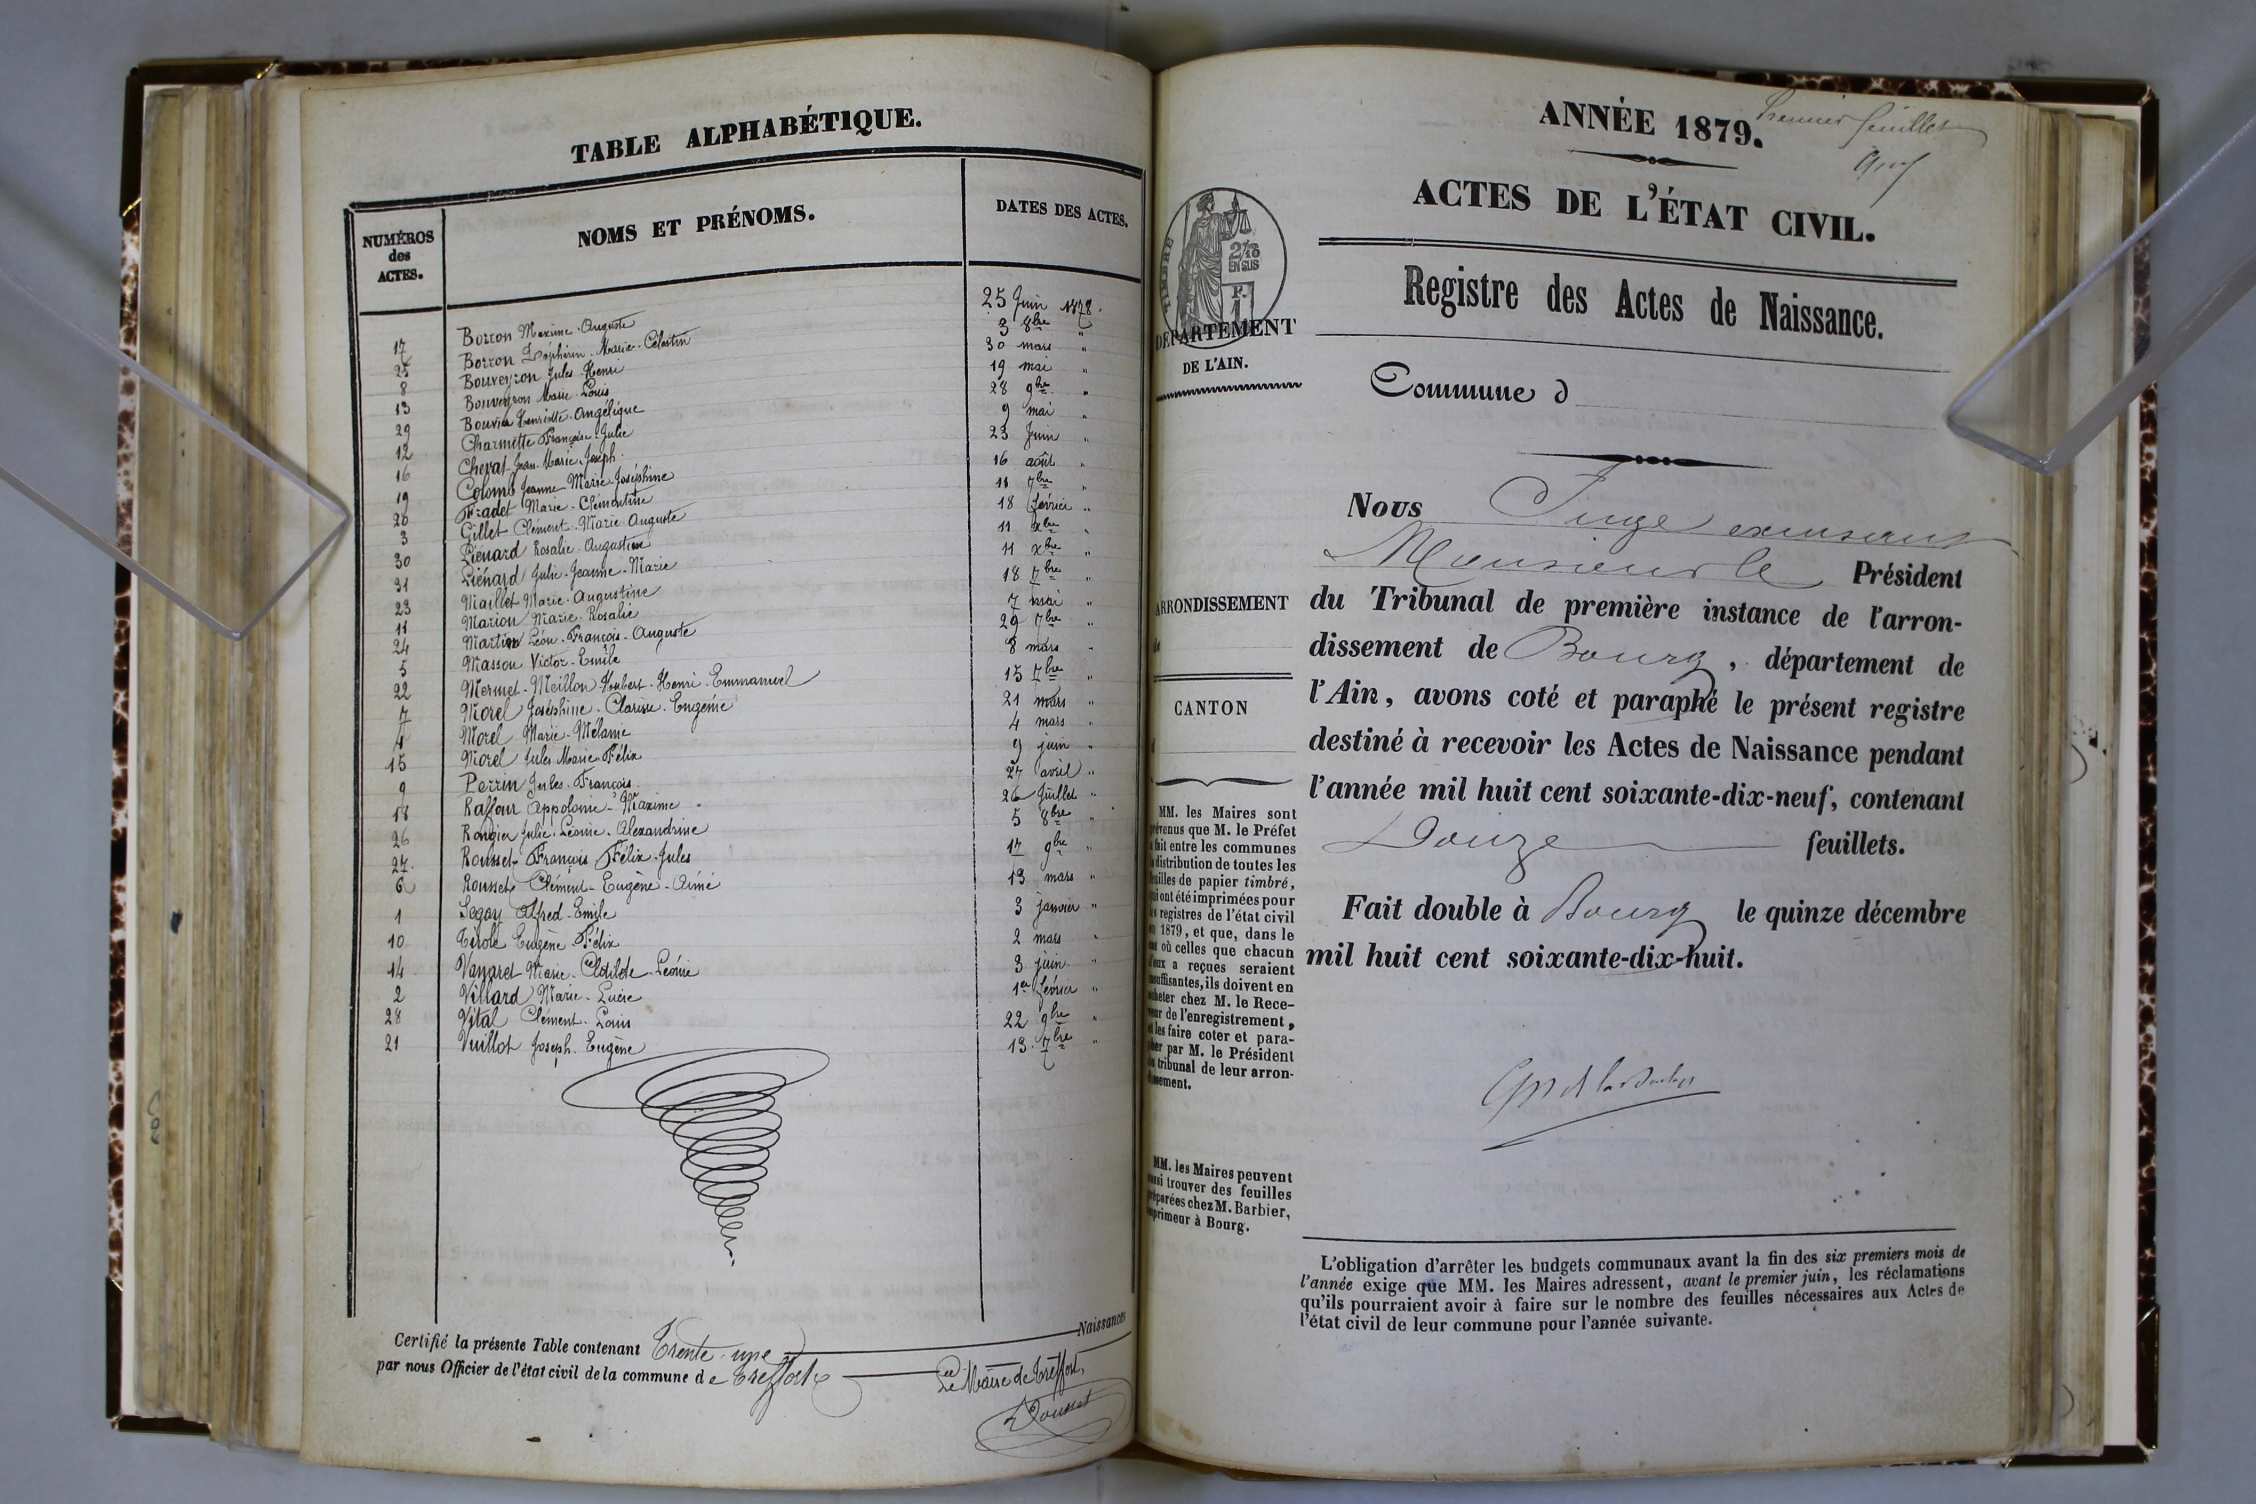 TABLE ALPHABÉTIQUE.
NUMÉROS
des
ACTES.
NOMS ET PRÉNOMS.
DATES DES ACTES.
17 Borron Maxime-Auguste 25 Juin 1878.
25 Borron Zéphirin-Marie-Célestin 3 8bre "
8 Bouveyron Jules-Henri 30 mars "
13 Bouveyron Marie-Louis 19 mai "
29 Bouvier Henriette-Angélique 28 9bre "
12 Charmette Françoise-Julie 9 mai "
16 Chevat Jean-Marie-Joseph 23 Juin "
19 Colomb Jeanne Marie-Joséphine 16 août "
20 Fradet Marie-Clémentine 11 7bre "
3 Gillet Clément-Marie-Auguste 18 février "
30 Liénard Rosalie-Augustine 11 xbre "
31 Liénard Julie-Jeanne-Marie 11 xbre "
23 Maillet Marie-Augustine 18 7bre "
11 Marion Marie-Rosalie 7 mai "
24 Martin Léon-François-Auguste 29 7bre "
5 Masson Victor-Emile 8 mars "
22 Mermet-Meillon Hubert-Henri-Emmanuel 15 7bre "
7 Morel Joséphine-Clarisse-Eugénie 21 mars "
4 Morel Marie-Mélanie 4 mars "
15 Morel Jules-Marie-Félix 9 juin "
9 Perrin Jules-François 27 avril "
18 Raffour Appolonie-Maxime 26 Juillet "
26 Rongier Julie-Léonie-Alexandrine 5 8bre "
27 Rousset François Félix-Jules 17 9bre "
6 Rousset Clément-Eugène-Aimé 13 mars "
1 Segoy Alfred-Emile 3 janvier "
10 Tirole Eugène-Félix 2 mars "
14 Vanaret Marie-Clotilde-Léonie 3 juin "
2 Villard Marie-Lucie 1er février "
28 Vital Clément-Louis 22 9bre "
21 Vuillot Joseph-Eugène 13 7bre "
Certifié la présente Table contenant Trente-une Naissances
par nous Officier de l'état civil de la commune de Treffort
Le Maire de Treffort,
ANNÉE 1879.
Premier feuillet
ACTES DE L'ÉTAT CIVIL.
Registre des Actes de Naissance.
TIMBRE
2/10
EN SUS
DÉPARTEMENT
DE L'AIN.
Commune d
Nous Juge
Monsieur le Président
du Tribunal de première instance de l'arron-
dissement de Bourg, département de
l'Ain, avons coté et paraphé le présent registre
destiné à recevoir les Actes de Naissance pendant
l'année mil huit cent soixante-dix-neuf, contenant
Douze feuillets.
Fait double à Bourg le quinze décembre
mil huit cent soixante-dix-huit.
ARRONDISSEMENT
CANTON
MM. les Maires sont
prévenus que M. le Préfet
a fait entre les communes
la distribution de toutes les
feuilles de papier timbré,
qui ont été imprimées pour
les registres de l'état civil
en 1879, et que, dans le
cas où celles que chacun
d'eux a reçues seraient
insuffisantes, ils doivent en
acheter chez M. le Rece-
veur de l'enregistrement,
et les faire coter et para-
pher par M. le Président
du tribunal de leur arron-
dissement.
MM. les Maires peuvent
aussi trouver des feuilles
préparées chez M. Barbier,
imprimeur à Bourg.
L'obligation d'arrêter les budgets communaux avant la fin des six premiers mois de
l'année exige que MM. les Maires adressent, avant le premier juin, les réclamations
qu'ils pourraient avoir à faire sur le nombre des feuilles nécessaires aux Actes de
l'état civil de leur commune pour l'année suivante.